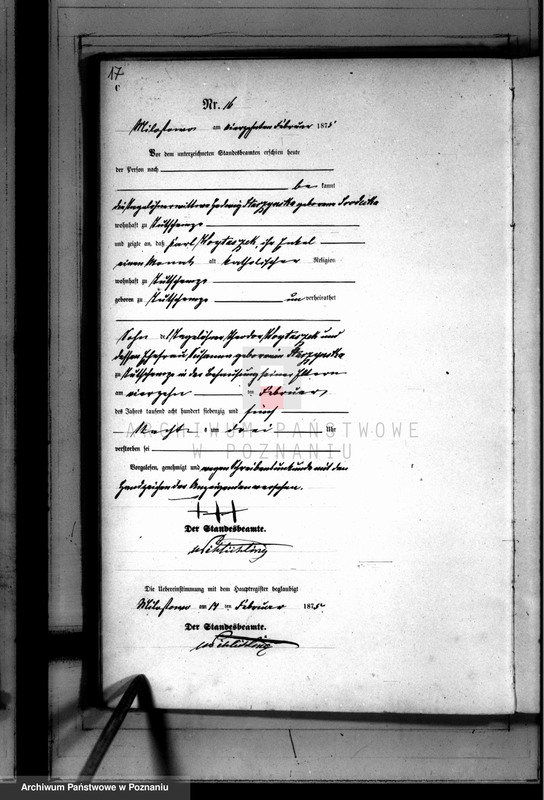 17
C
Nr. 16
Milostowo am vierzehnten Februar 1875
Vor dem unterzeichneten Standesbeamten erschien heute
der Person nach
be kannt
die Tagelöhnerwittwe Hedwig geborene
wohnhaft zu
und zeigte an, daß Karl , ihr Enkel
einen Monat alt katholischer Religion
wohnhaft zu
geboren zu un verheirathet
Sohn des Tagelöhners Theodor und
dessen Ehefrau Susanna geborenen
zu in der Behausung seiner Eltern
am vierzehn ten Februar
des Jahres tausend acht hundert siebenzig und fünf
Nachts um drei Uhr
verstorben sei
Vorgelesen, genehmigt und wegen Schreibensunkunde mit den
Handzeichen des Anzeigenden versehen.
+++
Der Standesbeamte.
Die Uebereinstimmung mit dem Hauptregister beglaubigt
Milostowo am 14 ten Februar 1875
Der Standesbeamte.
ARCHIWUM PAŃSTWOWE
W POZNANIU
Archiwum Państwowe w Poznaniu